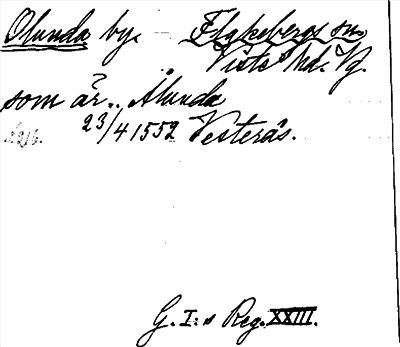 Olunda by. Flakebergs sn
Viste hd. Vg.
som är.. Ålunda
23/4 1552 Vesterås.
G. I:s Reg. XXIII.